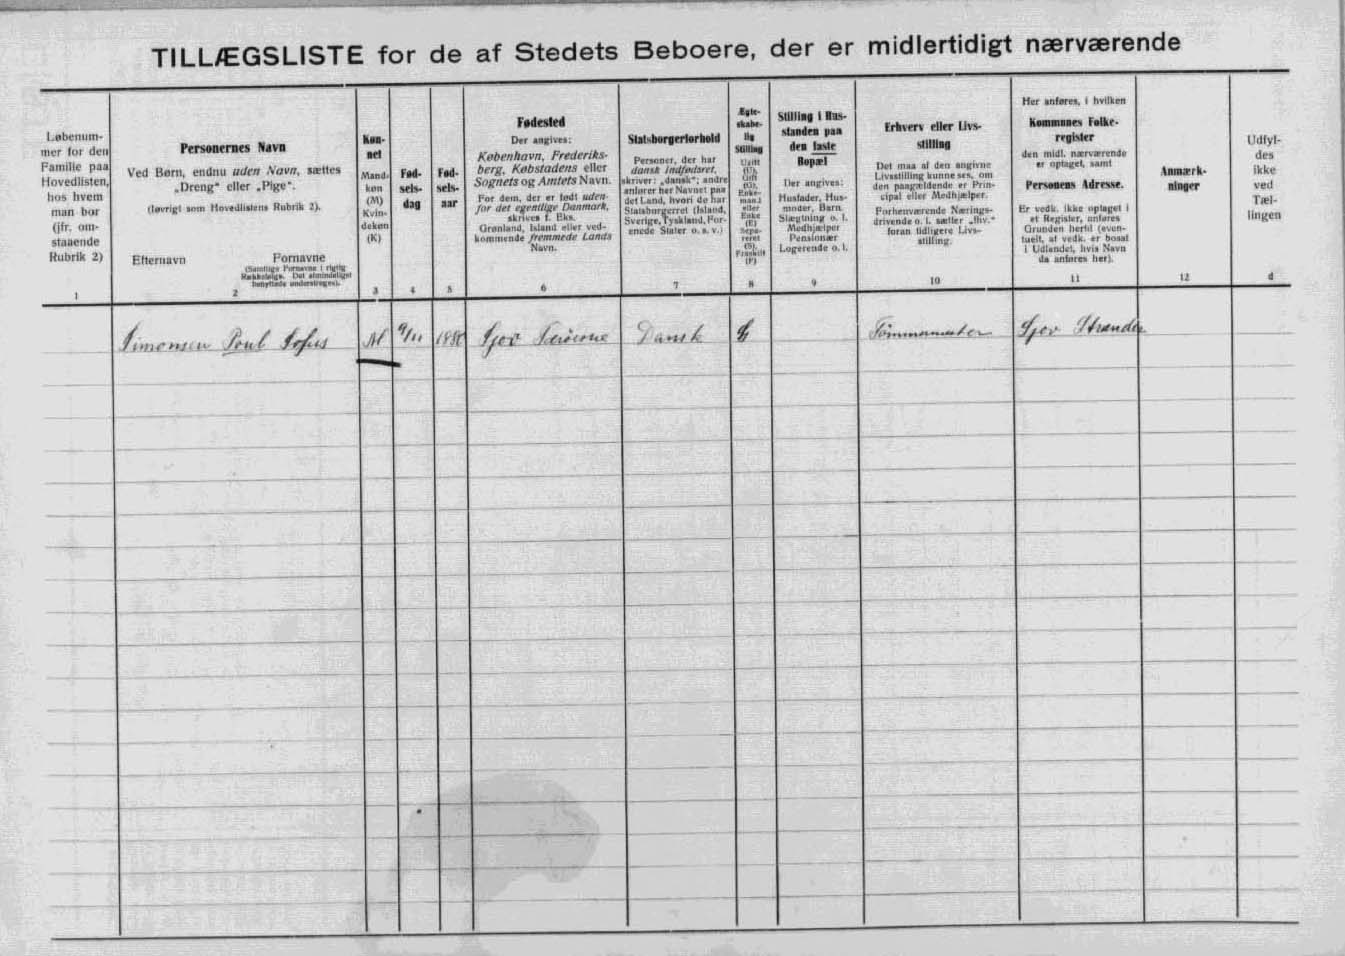 TILLÆGSLISTE for de af Stedets Beboere, der er midlertidigt nærværende
Løbenum-
mer for den
Familie paa
Hovedlisten,
hos hvem
man bor
(jfr. om-
staaende
Rubrik 2)
1
Personernes Navn
Ved Børn, endnu uden Navn, sættes
„Dreng“ eller „Pige“.
(Iøvrigt som Hovedlistens Rubrik 2).
Efternavn
Fornavne
(Samtlige Fornavne i rigtig
Rækkefølge. Det almindeligst
benyttede understreges).
2
Køn-
net
Mand-
køn
(M)
Kvin-
dekøn
(K)
3
Fød-
sels-
dag
4
Fød-
sels-
aar
5
Fødested
Der angives:
København, Frederiks-
berg, Købstadens eller
Sognets og Amtets Navn.
For dem, der er født uden-
for det egentlige Danmark,
skrives f. Eks.
Grønland, Island eller ved-
kommende fremmede Lands
Navn.
6
Statsborgerforhold
Personer, der har
dansk Indfødsret,
skriver: „dansk“; andre
anfører her Navnet paa
det Land, hvori de har
Statsborgerret (Island,
Sverige, Tyskland, For-
enede Stater o. s. v.)
7
Ægte-
skabe-
lig
Stilling
Ugift
(U),
Gift
(G),
Enke-
mand
eller
Enke
(E)
Sepa-
reret
(S),
Fraskilt
(F)
8
Stilling i Hus-
standen paa
den faste
Bopæl
Der angives:
Husfader, Hus-
moder, Barn,
Slægtning o. l.
Medhjælper
Pensionær
Logerende o. l.
9
Erhverv eller Livs-
stilling
Det maa af den angivne
Livsstilling kunne ses, om
den paagældende er Prin-
cipal eller Medhjælper.
Forhenværende Nærings-
drivende o. l. sætter „fhv.“
foran tidligere Livs-
stilling.
10
Her anføres, i hvilken
Kommunes Folke-
register
den midl. nærværende
er optaget, samt
Personens Adresse.
Er vedk. ikke optaget i
et Register, anføres
Grunden hertil (even-
tuelt, at vedk. er bosat
i Udlandet, hvis Navn
da anføres her).
11
Anmærk-
ninger
12
Udfyl-
des
ikke
ved
Tæl-
lingen
d
Simonsen Poul Sofus M 9/11 Sjov Færøerne Dansk G Tømmermester Sjov Strender